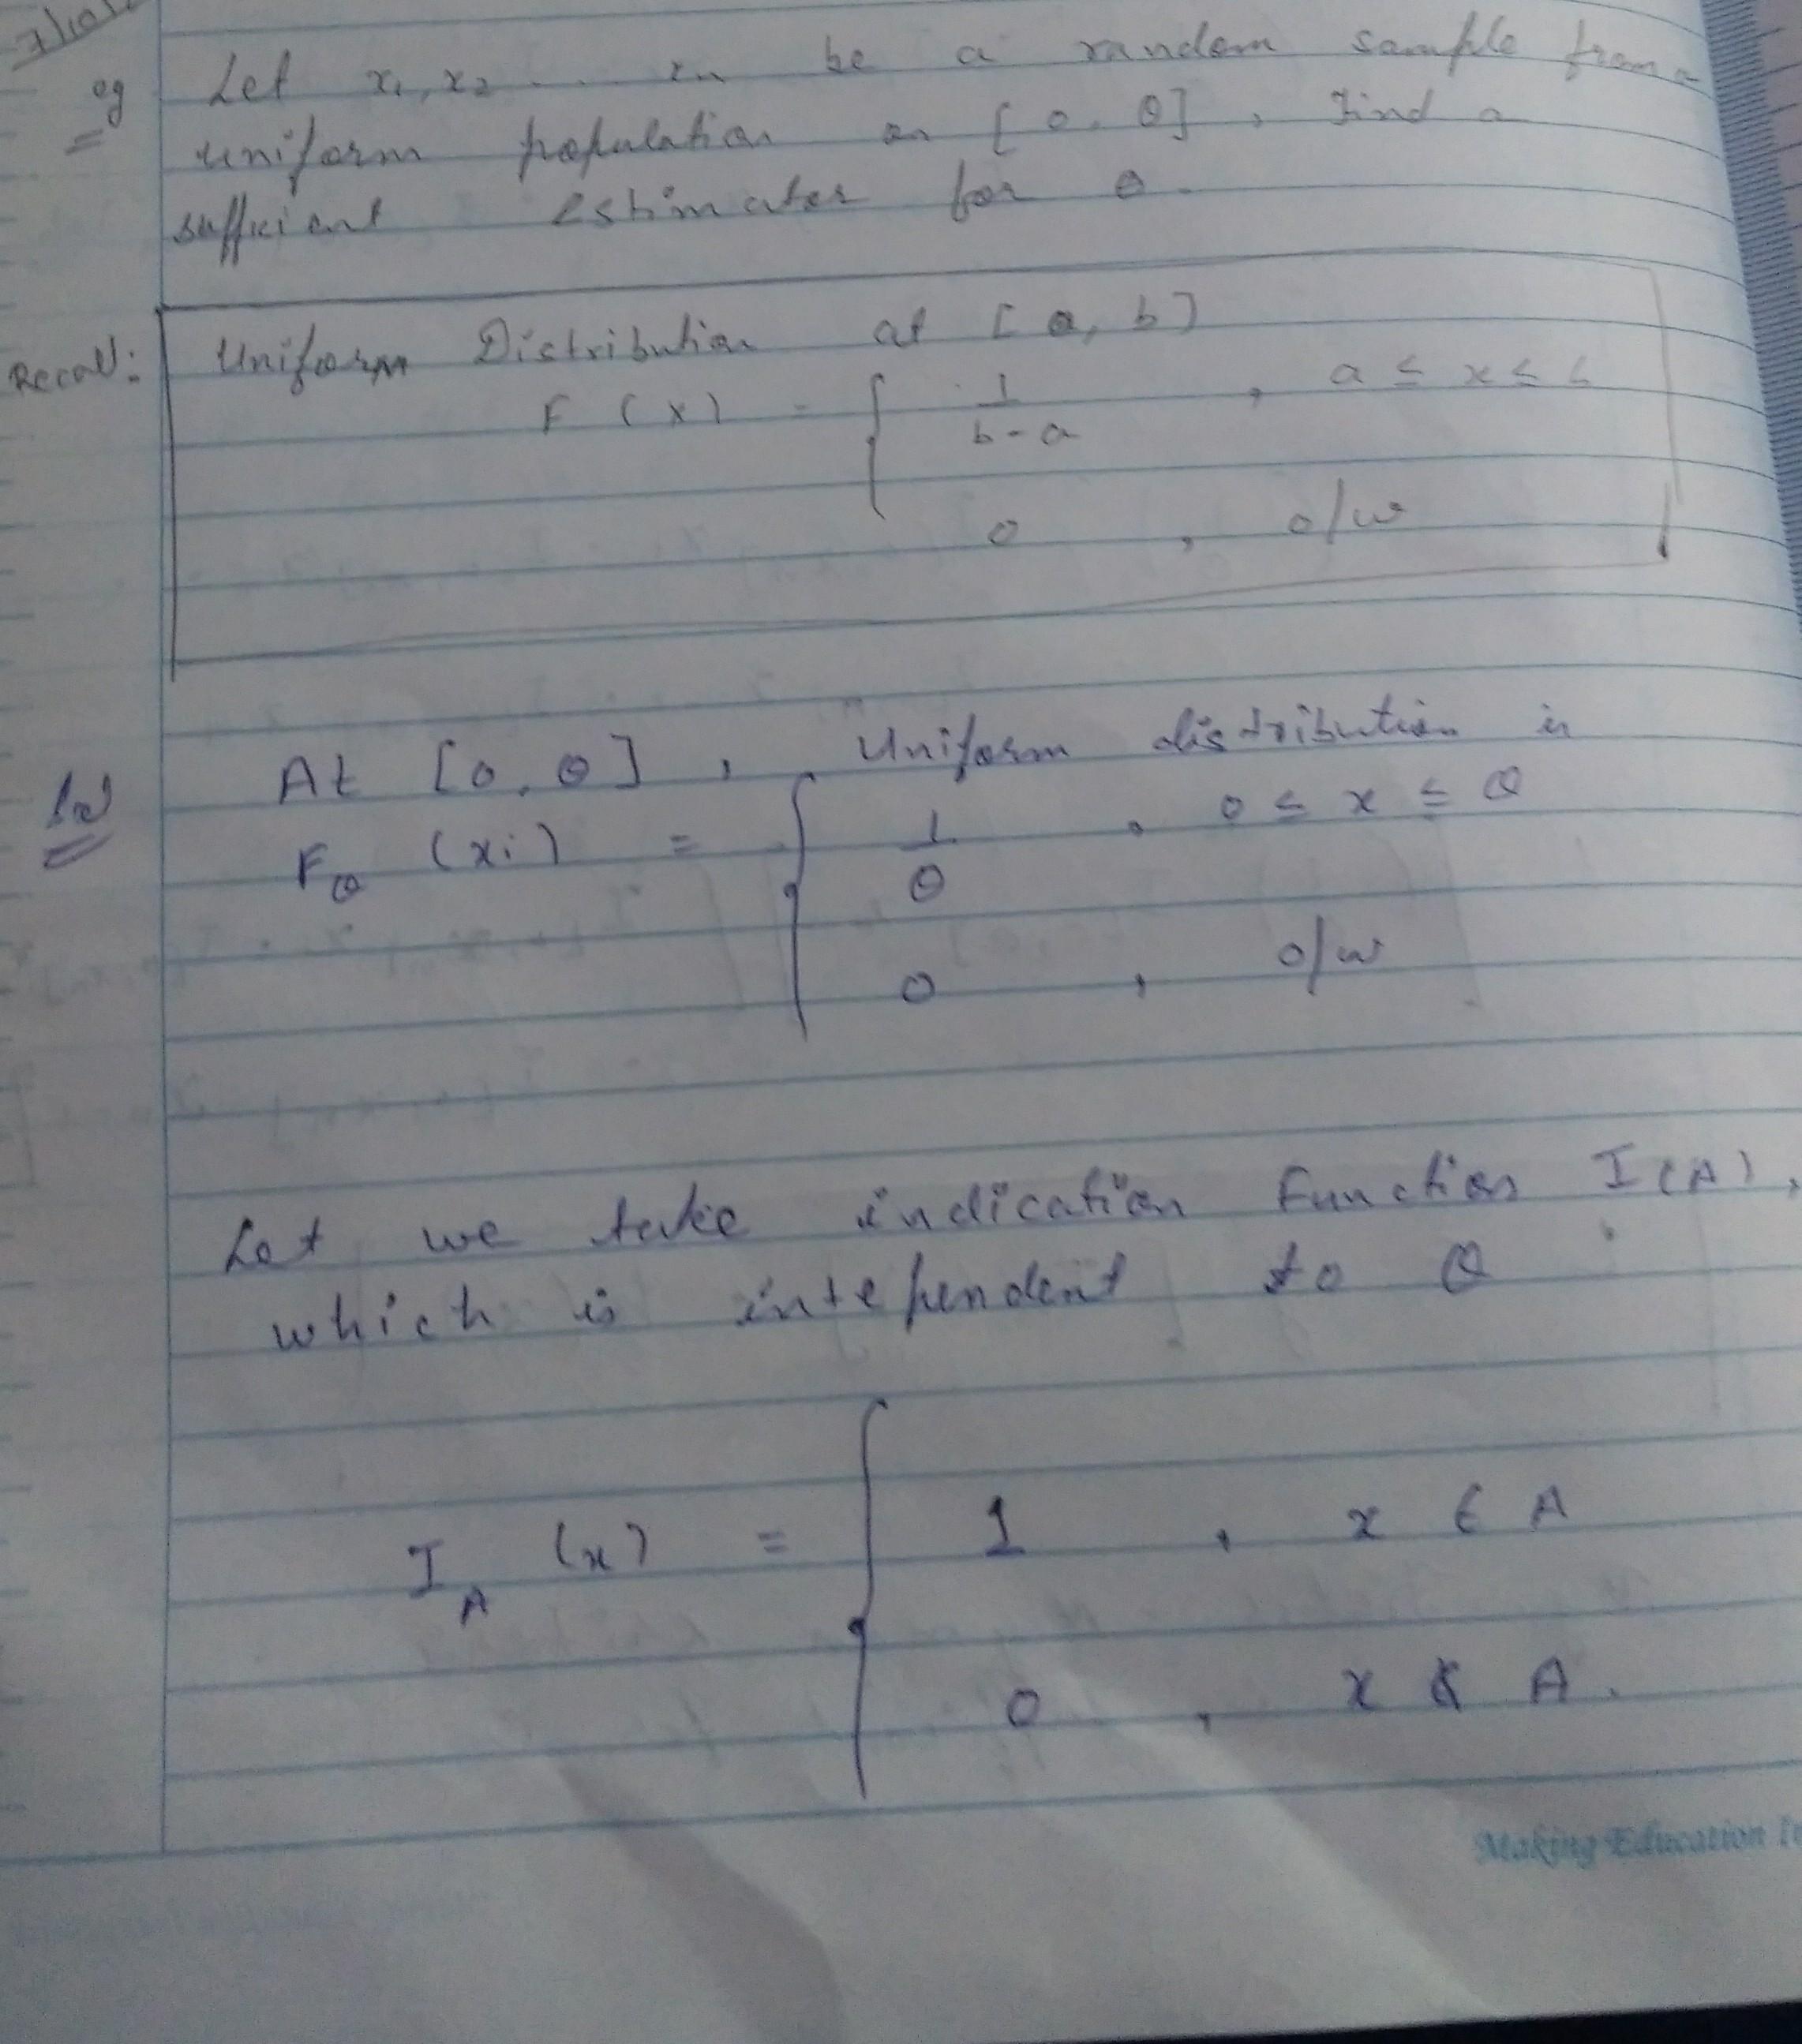 eg Let x₁, x₂ ... xₙ be a random sample from a
uniform population on [0, θ], Find a
sufficient estimator for θ.
Recall: Uniform Distribution at [a, b]
F(x) = { 1/(b-a) , a ≤ x ≤ b
0 , o/w
At [0, θ], Uniform distribution is
Fθ (xi) = { 1/θ , 0 ≤ x ≤ θ
0 , o/w
Let we take indication Function I(A),
which is intependent to θ
I_A (x) = { 1 , x ∈ A
0 , x ∉ A.
Making Education